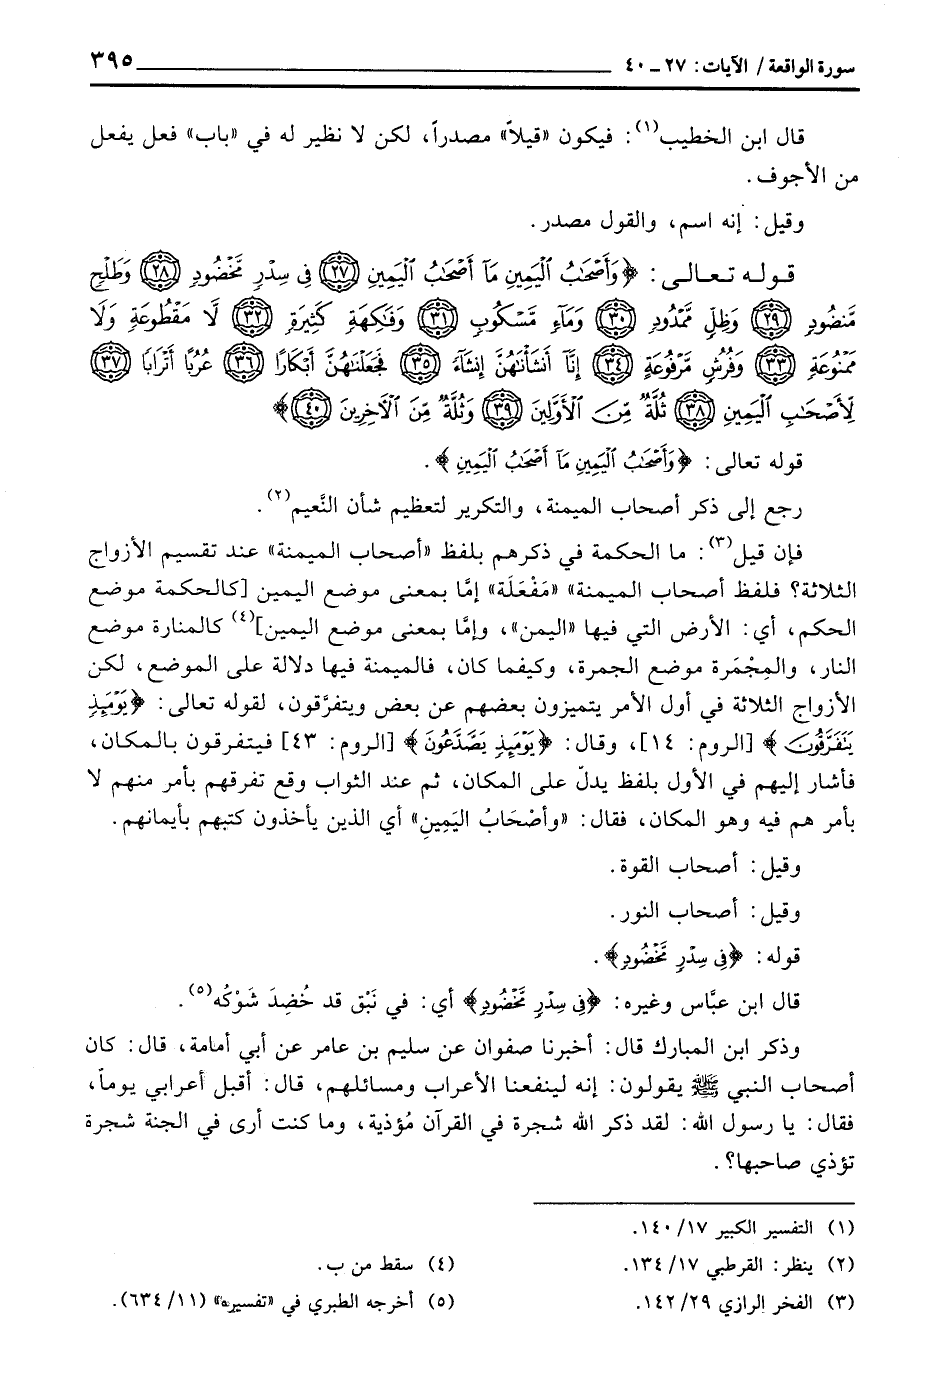 سورة الواقعة/ الآيات: ٢٧ ـ ٤٠ ٣٩٥
قال ابن الخطيب(١): فيكون «قيلاً» مصدراً، لكن لا نظير له في «باب» فعل يفعل
من الأجوف.
وقيل: إنه اسم، والقول مصدر.
قوله تعالى: ﴿وَأَصْحَٰبُ ٱلْيَمِينِ مَآ أَصْحَٰبُ ٱلْيَمِينِ ٢٧ فِى سِدْرٍ مَّخْضُودٍ ٢٨ وَطَلْحٍ
مَّنضُودٍ ٢٩ وَظِلٍّ مَّمْدُودٍ ٣٠ وَمَآءٍ مَّسْكُوبٍ ٣١ وَفَٰكِهَةٍ كَثِيرَةٍ ٣٢ لَّا مَقْطُوعَةٍ وَلَا
مَمْنُوعَةٍ ٣٣ وَفُرُشٍ مَّرْفُوعَةٍ ٣٤ إِنَّآ أَنشَأْنَٰهُنَّ إِنشَآءً ٣٥ فَجَعَلْنَٰهُنَّ أَبْكَارًا ٣٦ عُرُبًا أَتْرَابًا ٣٧
لِّأَصْحَٰبِ ٱلْيَمِينِ ٣٨ ثُلَّةٌ مِّنَ ٱلْأَوَّلِينَ ٣٩ وَثُلَّةٌ مِّنَ ٱلْآخِرِينَ ٤٠﴾
قوله تعالى: ﴿وَأَصْحَٰبُ ٱلْيَمِينِ مَآ أَصْحَٰبُ ٱلْيَمِينِ﴾.
رجع إلى ذكر أصحاب الميمنة، والتكرير لتعظيم شأن النَّعيم(٢).
فإن قيل(٣): ما الحكمة في ذكرهم بلفظ «أصحاب الميمنة» عند تقسيم الأزواج
الثلاثة؟ فلفظ أصحاب الميمنة» «مَفْعَلَة» إمَّا بمعنى موضع اليمين [كالحكمة موضع
الحكم، أي: الأرض التي فيها «اليمن»، وإمَّا بمعنى موضع اليمين](٤) كالمنارة موضع
النار، والمِجْمَرة موضع الجمرة، وكيفما كان، فالميمنة فيها دلالة على الموضع، لكن
الأزواج الثلاثة في أول الأمر يتميزون بعضهم عن بعض ويتفرَّقون، لقوله تعالى: ﴿يَوْمَئِذٍ
يَتَفَرَّقُونَ﴾ [الروم: ١٤]، وقال: ﴿يَوْمَئِذٍ يَصَّدَّعُونَ﴾ [الروم: ٤٣] فيتفرقون بالمكان،
فأشار إليهم في الأول بلفظ يدلّ على المكان، ثم عند الثواب وقع تفرقهم بأمر منهم لا
بأمر هم فيه وهو المكان، فقال: «وأصْحَابُ اليَمِينِ» أي الذين يأخذون كتبهم بأيمانهم.
وقيل: أصحاب القوة.
وقيل: أصحاب النور.
قوله: ﴿فِى سِدْرٍ مَّخْضُودٍ﴾.
قال ابن عبَّاس وغيره: ﴿فِى سِدْرٍ مَّخْضُودٍ﴾ أي: في نَبْق قد خُضِدَ شَوْكُه(٥).
وذكر ابن المبارك قال: أخبرنا صفوان عن سليم بن عامر عن أبي أمامة، قال: كان
أصحاب النبي ﷺ يقولون: إنه لينفعنا الأعراب ومسائلهم، قال: أقبل أعرابي يوماً،
فقال: يا رسول الله: لقد ذكر الله شجرة في القرآن مُؤذية، وما كنت أرى في الجنة شجرة
تؤذي صاحبها؟.
(١) التفسير الكبير ١٧/ ١٤٠.
(٢) ينظر: القرطبي ١٧/ ١٣٤. (٤) سقط من ب.
(٣) الفخر الرازي ٢٩/ ١٤٢. (٥) أخرجه الطبري في «تفسيره» (١١/ ٦٣٤).